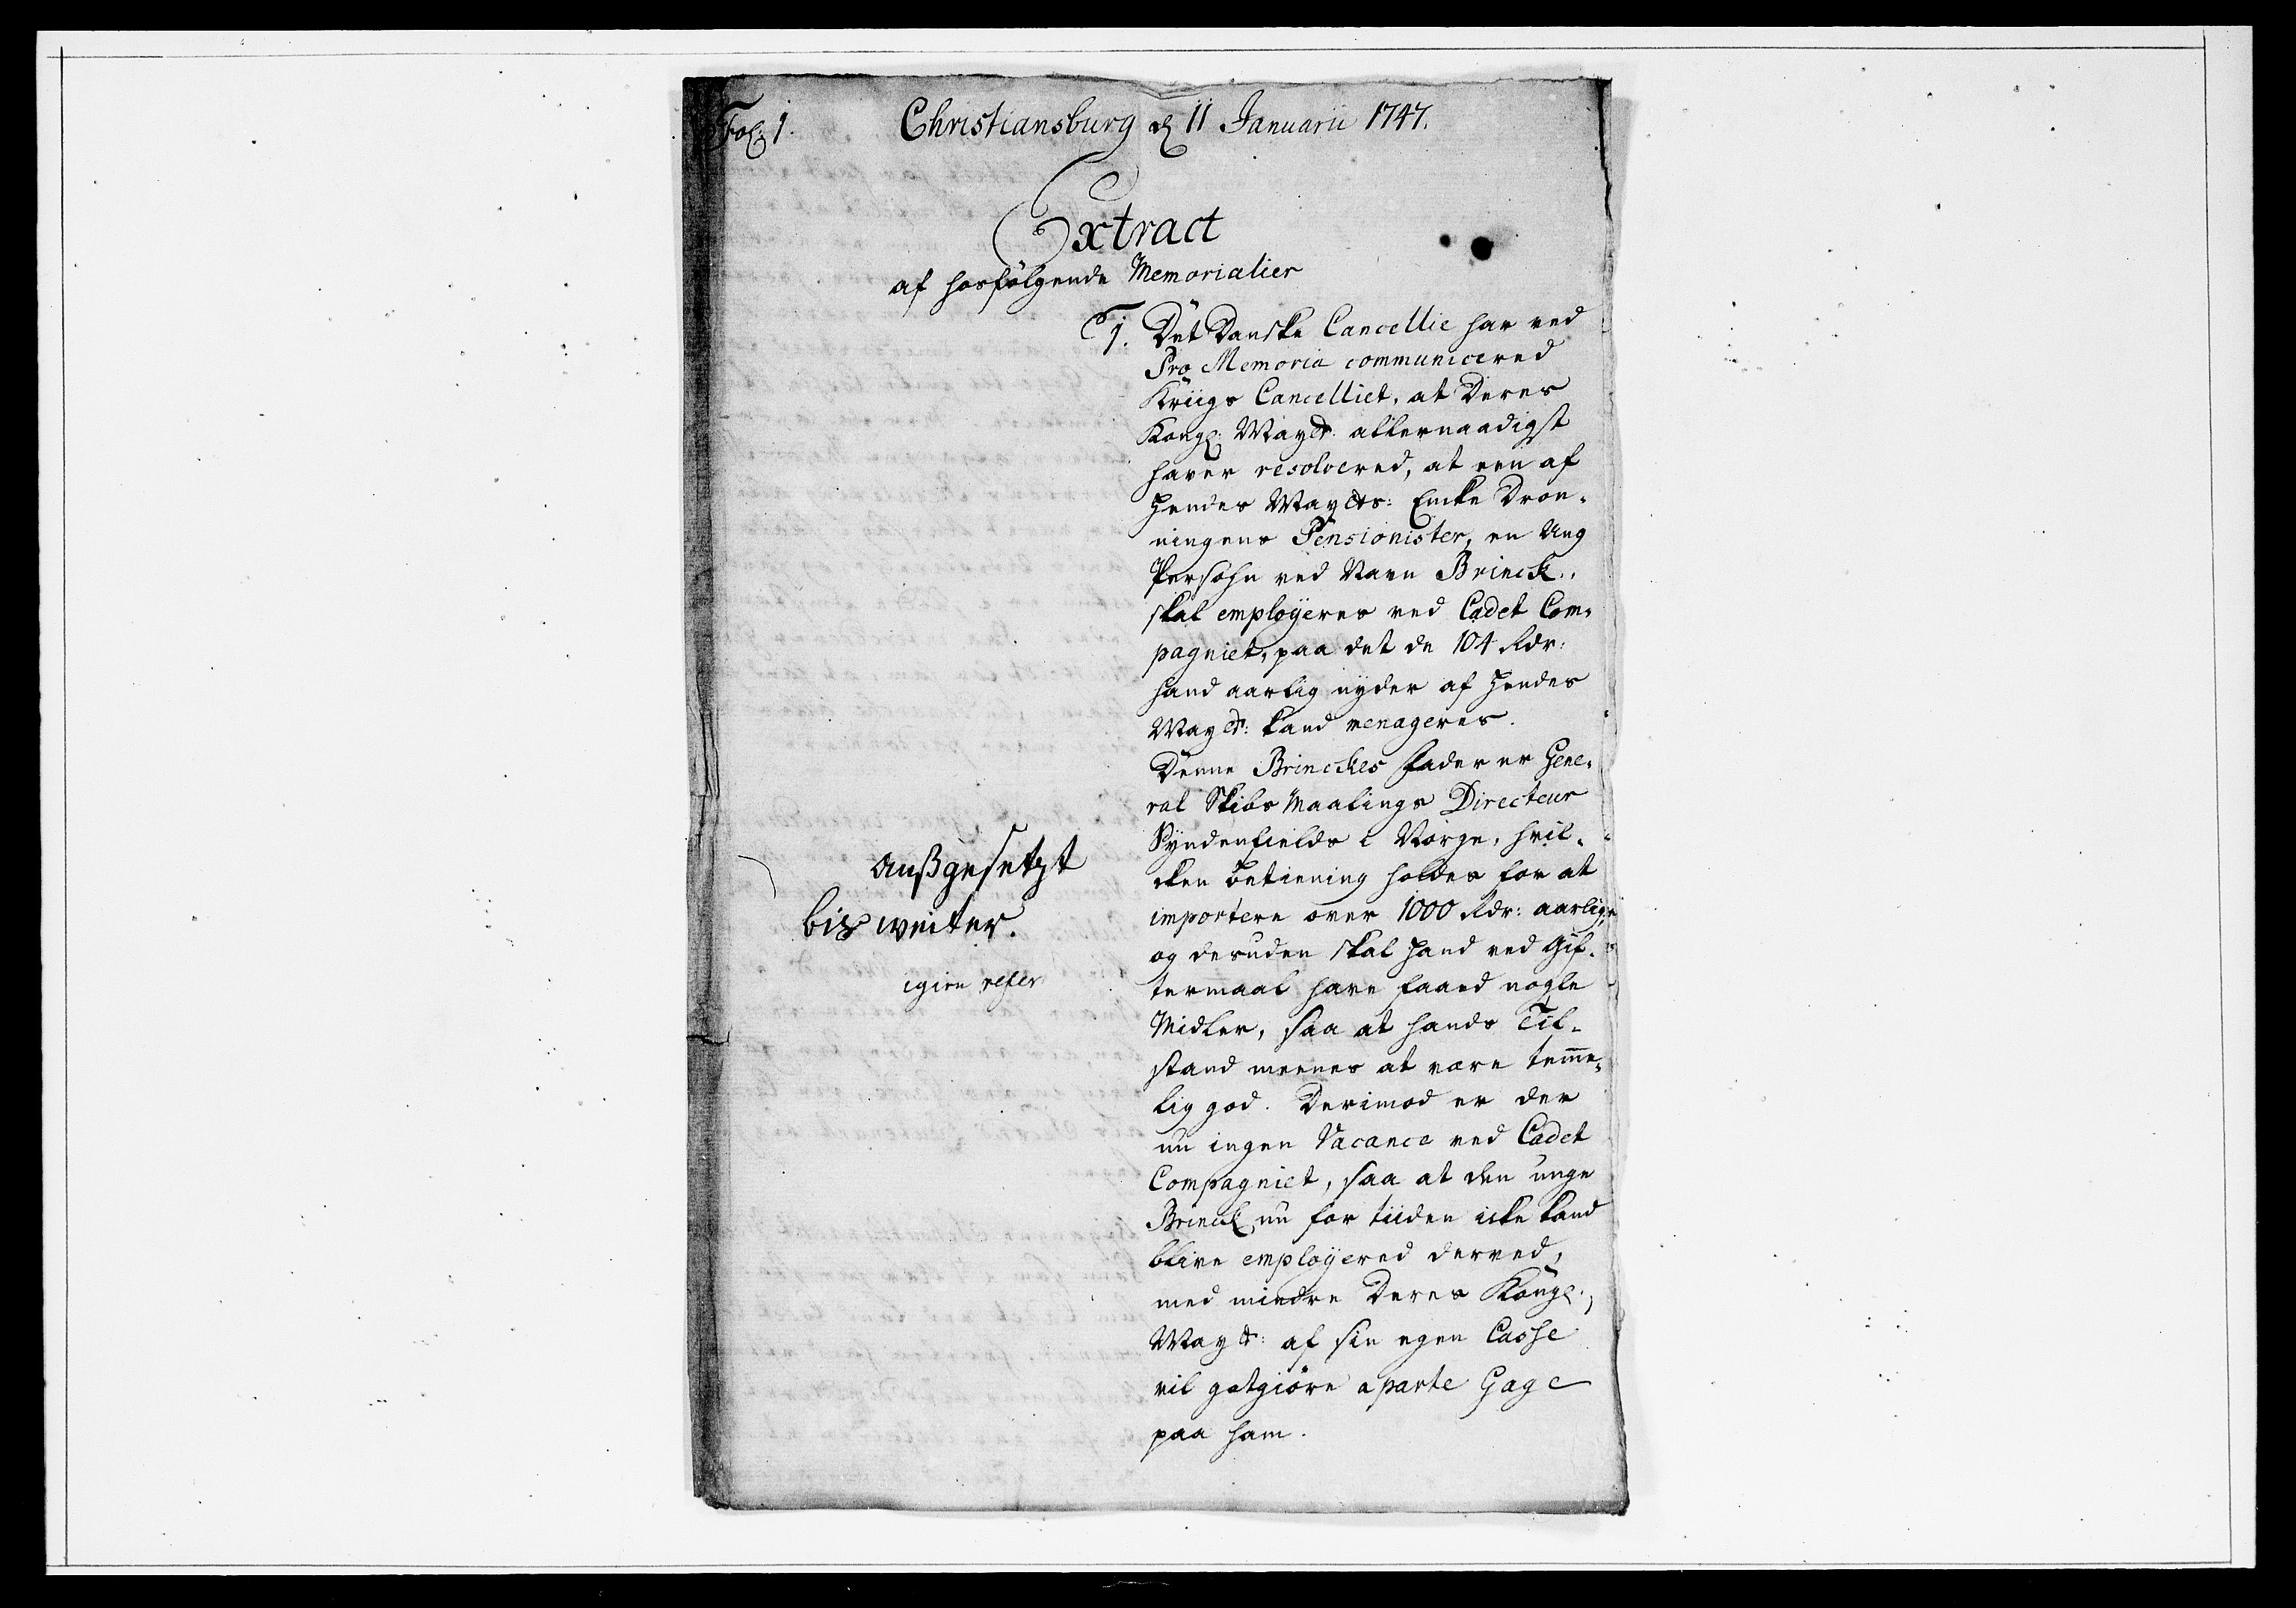 Fol: 1.
Christiansburg d 11 Januarii 1747.
Extract
af hosfølgende Memorialier
1. Det Danske Cancellie har ved
Pro Memoria communicered
Kriigs Cancelliet, at Deres
Kongl: Mayt: allernaadigst
haver resolvered, at een af
Hendes Mayts: Encke Dron-
ningens Pensionister, en Ung
Persohn ved Navn Brinck,
skal employeres ved Cadet Com-
pagniet, paa det de 104 Rdr:
hand aarlig nyder af Hendes
Mayt: kand menageres.
Denne Brinckes Fader er Gene-
ral Skibs Maalings Directeur
Syndenfields i Norge, hvil-
cken betiening holdes for at
importere over 1000 Rdr: aarlig,
og desuden skal hand ved Gif-
termaal have faaed nogle
Midler, saa at hands Til-
stand meenes at være temme-
lig god. Derimod er der
nu ingen Vacance ved Cadet
Compagniet, saa at den unge
Brinck nu for tiiden icke kand
blive employered derved,
med mindre Deres Kongl:
Mayt: af sin egen Casse
vil gotgiøre aparte Gage
paa ham.
außgesetzt
bis weiter.
igien refer